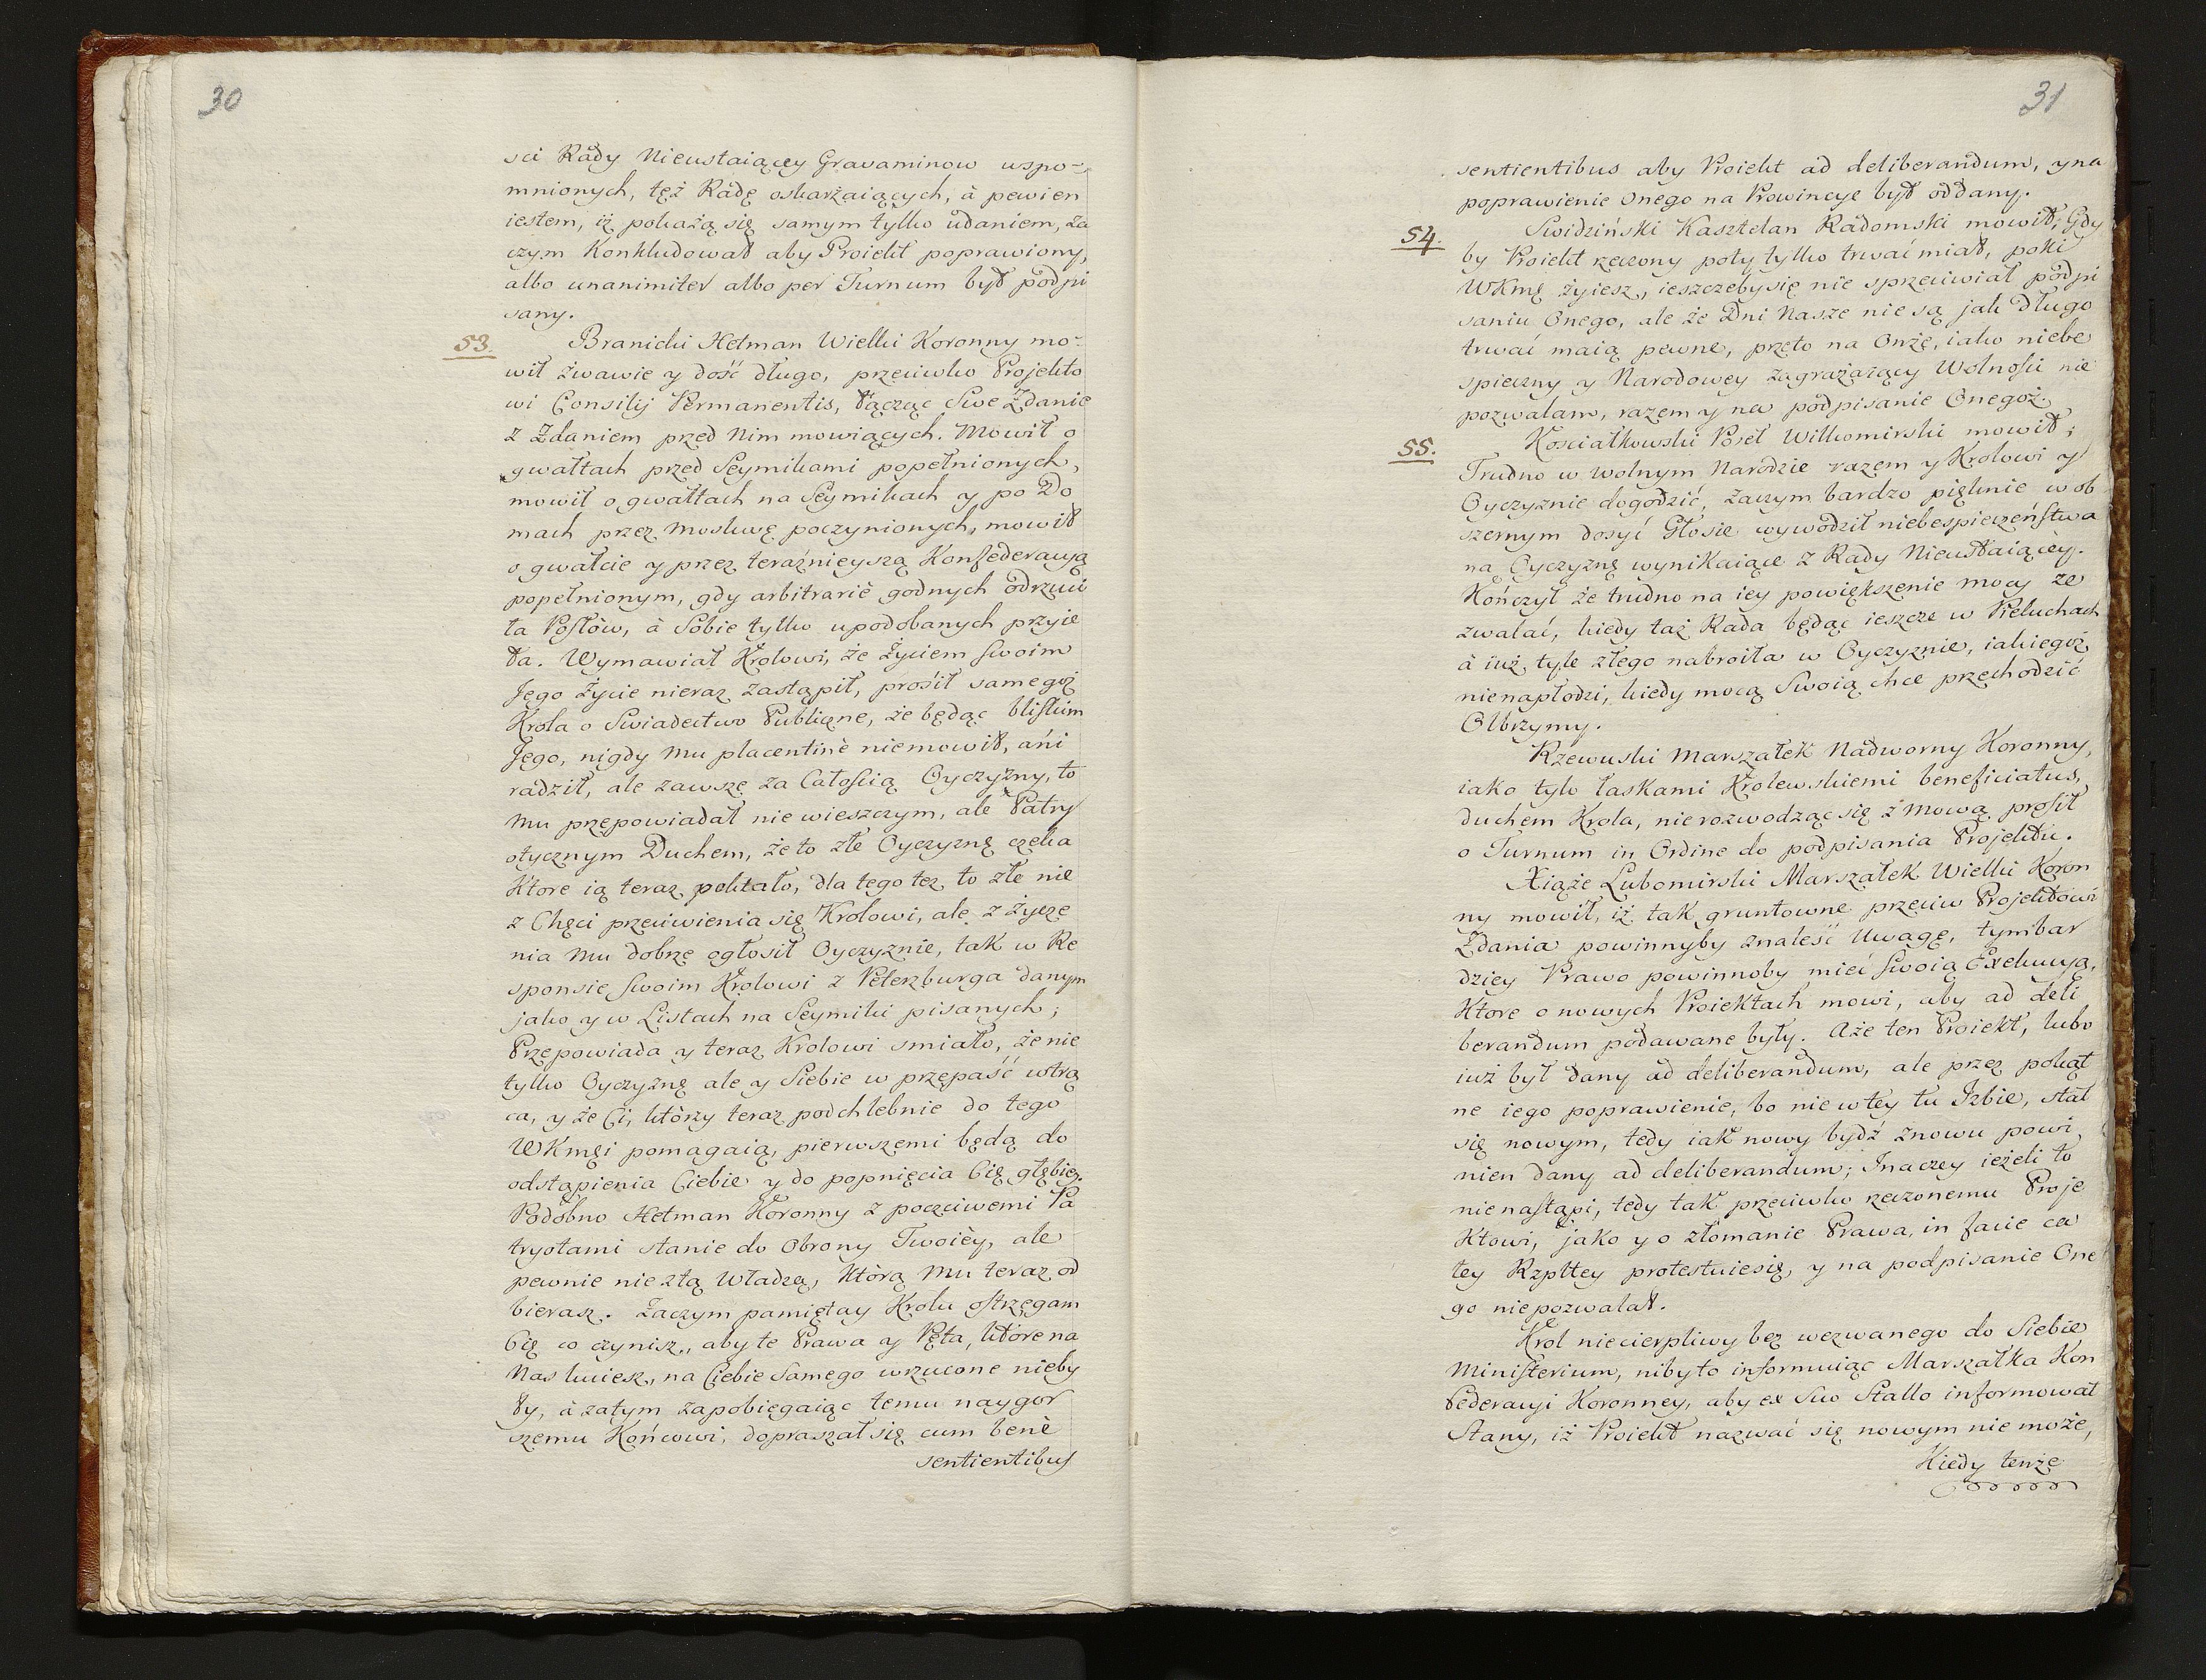 30
sci Rady Nieustaiącey Gravaminow wspo-
mnionych, tęż Radę oskarżaiących, à pewien
iestem, iż pokażą się samym tylko udaniem, za
czym Konkludował aby Proiekt poprawiony,
albo unanimiter albo per Turnum był podpi
sany.
53.
Branicki Hetman Wielki Koronny mo-
wił żwawie y dość długo, przeciwko Projekto
wi Consilij Permanentis, łącząc Swe Zdanie
z Zdaniem przed Nim mowiących. Mowił o
gwałtach przed Seymikami popełnionych,
mowił o gwałtach na Seymikach y po Do
mach przez Moskwę poczynionych, mowił
o gwałcie y przez teraźnieyszą Konfederacyą
popełnionym, gdy arbitrariè godnych odrzuci
ła Posłòw, à Sobie tylko upodobanych przyię
ła. Wymawiał Krolowi, że Życiem swoim
Jego Życie nieraz zastąpił, prosił samegoż
Krola o Swiadectwo Publiczne, że będąc bliskim
Jego, nigdy Mu placentinè niemowił, ani
radził, ale zawsze za Całoscią Oyczyzny, to
Mu przepowiadał nie wieszczym, ale Patry
otycznym Duchem, że to złe Oyczyznę czeka
Ktore ią teraz potkało, dla tego też to złe nie
z Chęci przeciwienia się Krolowi, ale z życze
nia Mu dobrze ogłosił Oyczyznie, tak w Re
sponsie swoim Krolowi z Peterzburga danym
jako y w Listach na Seymiki pisanych;
Przepowiada y teraz Krolowi smiało, że nie
tylko Oyczyznę ale y Siebie w przepaść wtrą
ca, y że Ci, ktòrzy teraz podchlebnie do tego
WKmęi pomagaią, pierwszemi będą do
odstąpienia Ciebie y do popnięcia Cię głębiey.
Podobno Hetman Koronny z poczciwemi Pa
tryotami stanie do Obrony Twoièy, ale
pewnie nie z tą Władzą, Ktòrą Mu teraz od
bierasz. Zaczym pamiętay Krolu ostrzegam
Cię co czynisz, aby te Prawa y Pęta, ktòre na
Nas kuiesz, na Ciebie Samego wrzucone nieby
ły, à zatym zapobiegaiąc temu naygor
szemu Końcowi, dopraszał się cum benè
sentientibus
31
sentientibus aby Proiekt ad deliberandum, y na
poprawienie Onego na Prowincye był oddany.
54.
Swidziński Kasztelan Radomski mowił, Gdy
by Proiekt rzeczony poty tylko trwać miał, poki
WKmę żyiesz, ieszczebysię nie sprzeciwiał podpi
saniu Onego, ale że Dni Nasze nie są jak Długo
trwać maią pewne, przeto na Onże, iako niebe
spieczny y Narodowey zagrażaiący Wolnosci nie
pozwalam, razem y na podpisanie Onegoż.
55.
Kosciałkowski Poseł Wiłkomirski mowił;
Trudno w wolnym Narodzie razem y Krolowi y
Oyczyznie dogodzić, zaczym bardzo pięknie w ob
szernym dosyć Głosie wywodził niebespieczeństwa
na Oyczyznę wynikaiące z Rady Nieustaiącey.
Kończył że trudno na iey powiększenie mocy ze
zwalać, kiedy taż Rada będąc ieszcze w Pieluchach
à iuż tyle złego nabroiła w Oyczyznie, iakiegoż
nienapłodzi, kiedy mocą Swoią chce przechodzić
Olbrzymy.
Rzewuski Marszałek Nadworny Koronny,
iako tylo łaskami Krolewskiemi beneficiatus,
duchem Krola, nie rozwodząc się z Mową prosił
o Turnum in Ordine do podpisania Projektu.
Xiąże Lubomirski Marszałek Wielki Koron
ny mowił, iż tak gruntowne przeciw Projektowi
Zdania powinnyby znaleść Uwagę, tymbar
dziey Prawo powinnoby mieć Swoią Exekucyą,
Ktore o nowych Proiektach mowi, aby ad deli
berandum podawane były. Aże ten Proiekt, lubo
iuż był Dany ad deliberandum, ale przez pokąt
ne iego poprawienie, bo nie w tey tu Izbie, stał
się nowym, tedy iak nowy bydź znowu powi
nien dany ad deliberandum; Inaczey ieżeli to
nie nastąpi, tedy tak przeciwko rzeczonemu Proje
Ktowi, jako y o złomanie Prawa, in facie ca
łey Rzplttey protestuiesię, y na podpisanie One
go nie pozwalał.
Krol niecierpliwy bez wezwanego do Siebie
Ministerium, niby to informuiąc Marszałka Kon
federacyi Koronney, aby ex Suo Stallo informował
Stany, iż Proiekt nazwać się nowym nie może,
Kiedy tenże